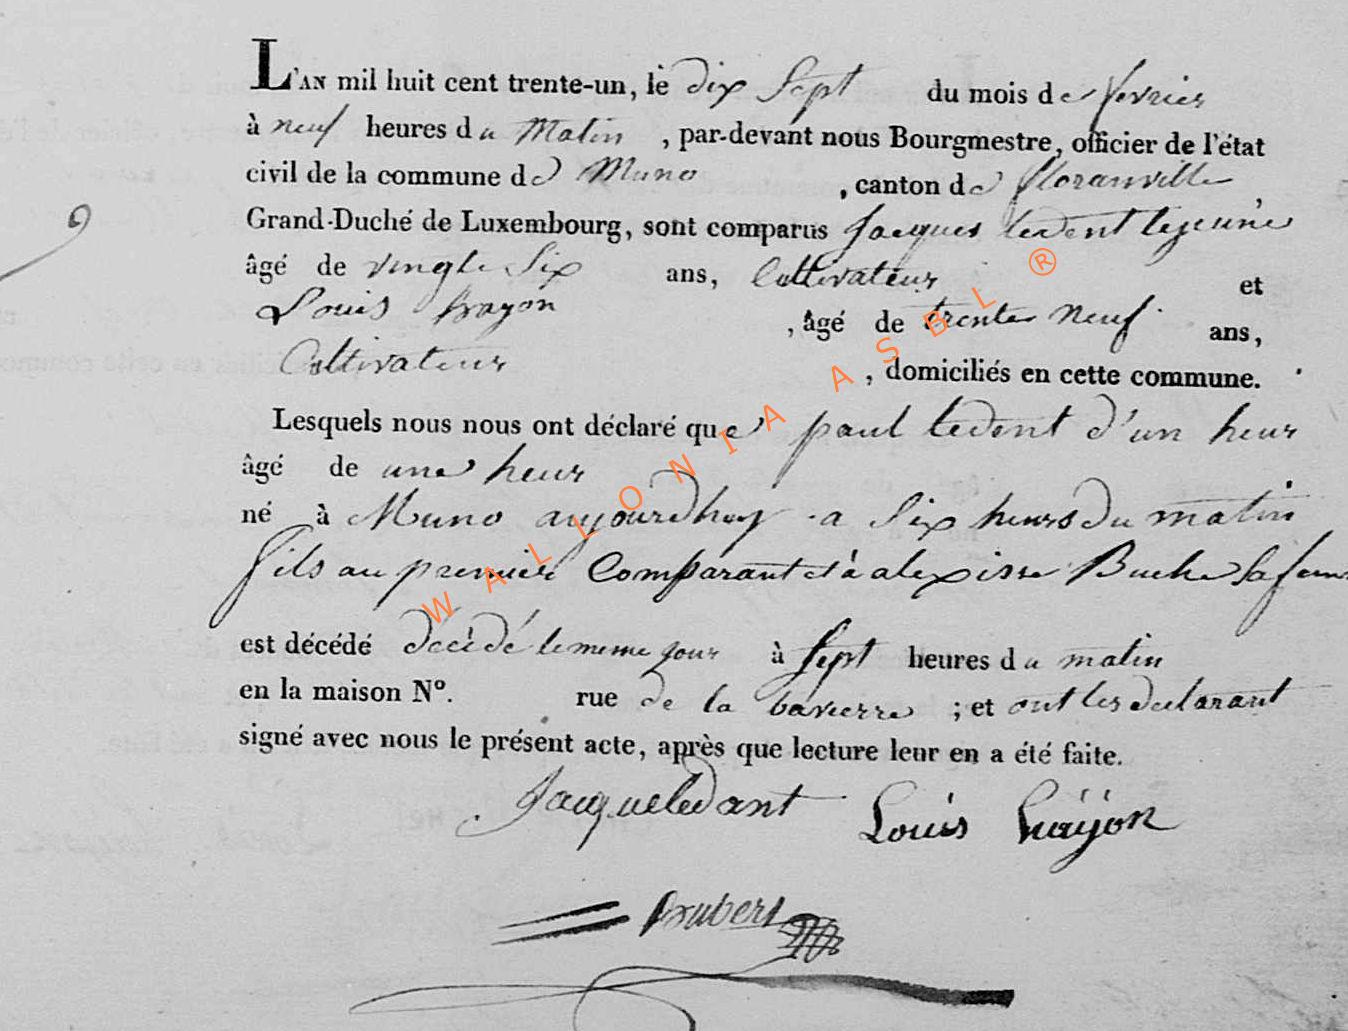 L'AN mil huit cent trente-un, le dix Sept du mois de fevrier
à neuf heures du Matin , par-devant nous Bourgmestre, officier de l'état
civil de la commune de Muno , canton de floranville
Grand-Duché de Luxembourg, sont comparus Jacques ledent lejeune
âgé de vingte Six ans, Cultivateur et
Louis frayon , âgé de trente neuf ans,
Cultivateur , domiciliés en cette commune.
Lesquels nous nous ont déclaré que paul ledent d'un heur
âgé de une heur
né à Muno aujourdhuy a Six heurs du matin
fils au premier Comparant et à alexisse Buche Sa fem
est décédé décédé le meme jour à Sept heures du matin
en la maison N°. rue de la bavierre ; et ont les declarant
signé avec nous le présent acte, après que lecture leur en a été faite.
Jacque ledant Louis
WALLONIA ASBL ®